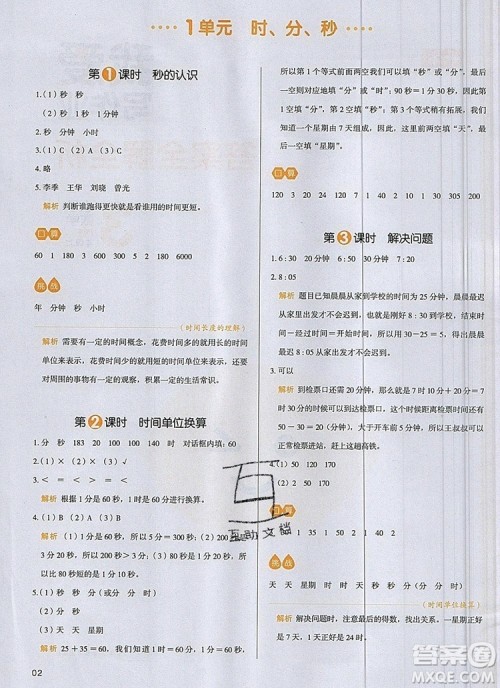 1单元 时、分、秒
第1课时 秒的认识
1.(1)秒 秒
(2)秒 1 分钟
2.秒 分钟 小时
3.(1)C (2)A (3)C
4.略
5.李季 王华 刘晓 曾光
解析 判断谁跑得更快就是看谁用的时间更短。
口算
60 1 180 3 600 300 5 6 300
挑战
年 分钟 秒 小时
(时间长度的理解)
解析 需要有一定的时间概念，花费时间多的就用长的时间
单位来表示，花费时间少的就用短的时间单位来表示，要对
周围的事物有一定的观察，积累一定的生活常识。
第2课时 时间单位换算
1.分 秒 183 20 100 10 140 对话框内填：60
2.(1)× (2)× (3)√
3.< = > < = >
解析 根据 1 分 = 60 秒，进行换算。
4.(1)A (2)B
解析 (1)200 秒 = 3 分 20 秒。(2)200 分 =
3 时 20 分，所以 3 分钟比 200 秒更短，所以
比 3 分钟更短的就比 200 秒更短。
5.(1)(2)秒 分
(3)天 天 星期
解析 25 + 35 = 60，我们学过 1 分 = 60 秒，1 时 = 60 分，
02
所以第 1 个等式前面两空我们可以填“秒”或“分”，最后一
空则对应地填“分”或“时”；90 秒 = 1 分 30 秒，90 分 = 1 时
30 分，所以第 2 空填“秒”或“分”。第 3 个等式稍有拓展，
我们知道一个星期有 7 天，所以前两空填“天”，最后一
空填“星期”。
口算
120 3 120 2 1 120 180 130 240 215
第3课时 解决问题
1.6：30 20 分钟 30 分钟 7：20
2.8：05
解析 题目已知晨晨从家到学校的时间为 25 分钟，晨晨最
迟从家里出发的时间为 7：40，那么就可以根据“经过时间
+ 开始时间 = 结束时间”，求出学校的上课时间为 8：05。
3.可以
解析 到检票口共有 20 分钟，检票口到站台要 8 + 2 =
10（分钟），那么总共用时 20 + 10 = 30（分钟），所以
50 - 30 = 20（分钟），大于开车前 5 分钟，所以王叔叔可以
正常检票进站，赶上这趟高铁。
4.(1)50 (2)120
口算
150 7 3 5 120 170 4 240
挑战
天 天 星期 时 时 天
(时间单位换算)
解析 解决问题时，注意最后的得数，找出关键，如 24 - 7
= 17，而 17 + 7 正好是 24 时。
互助文档
答案圈
MXQE.COM